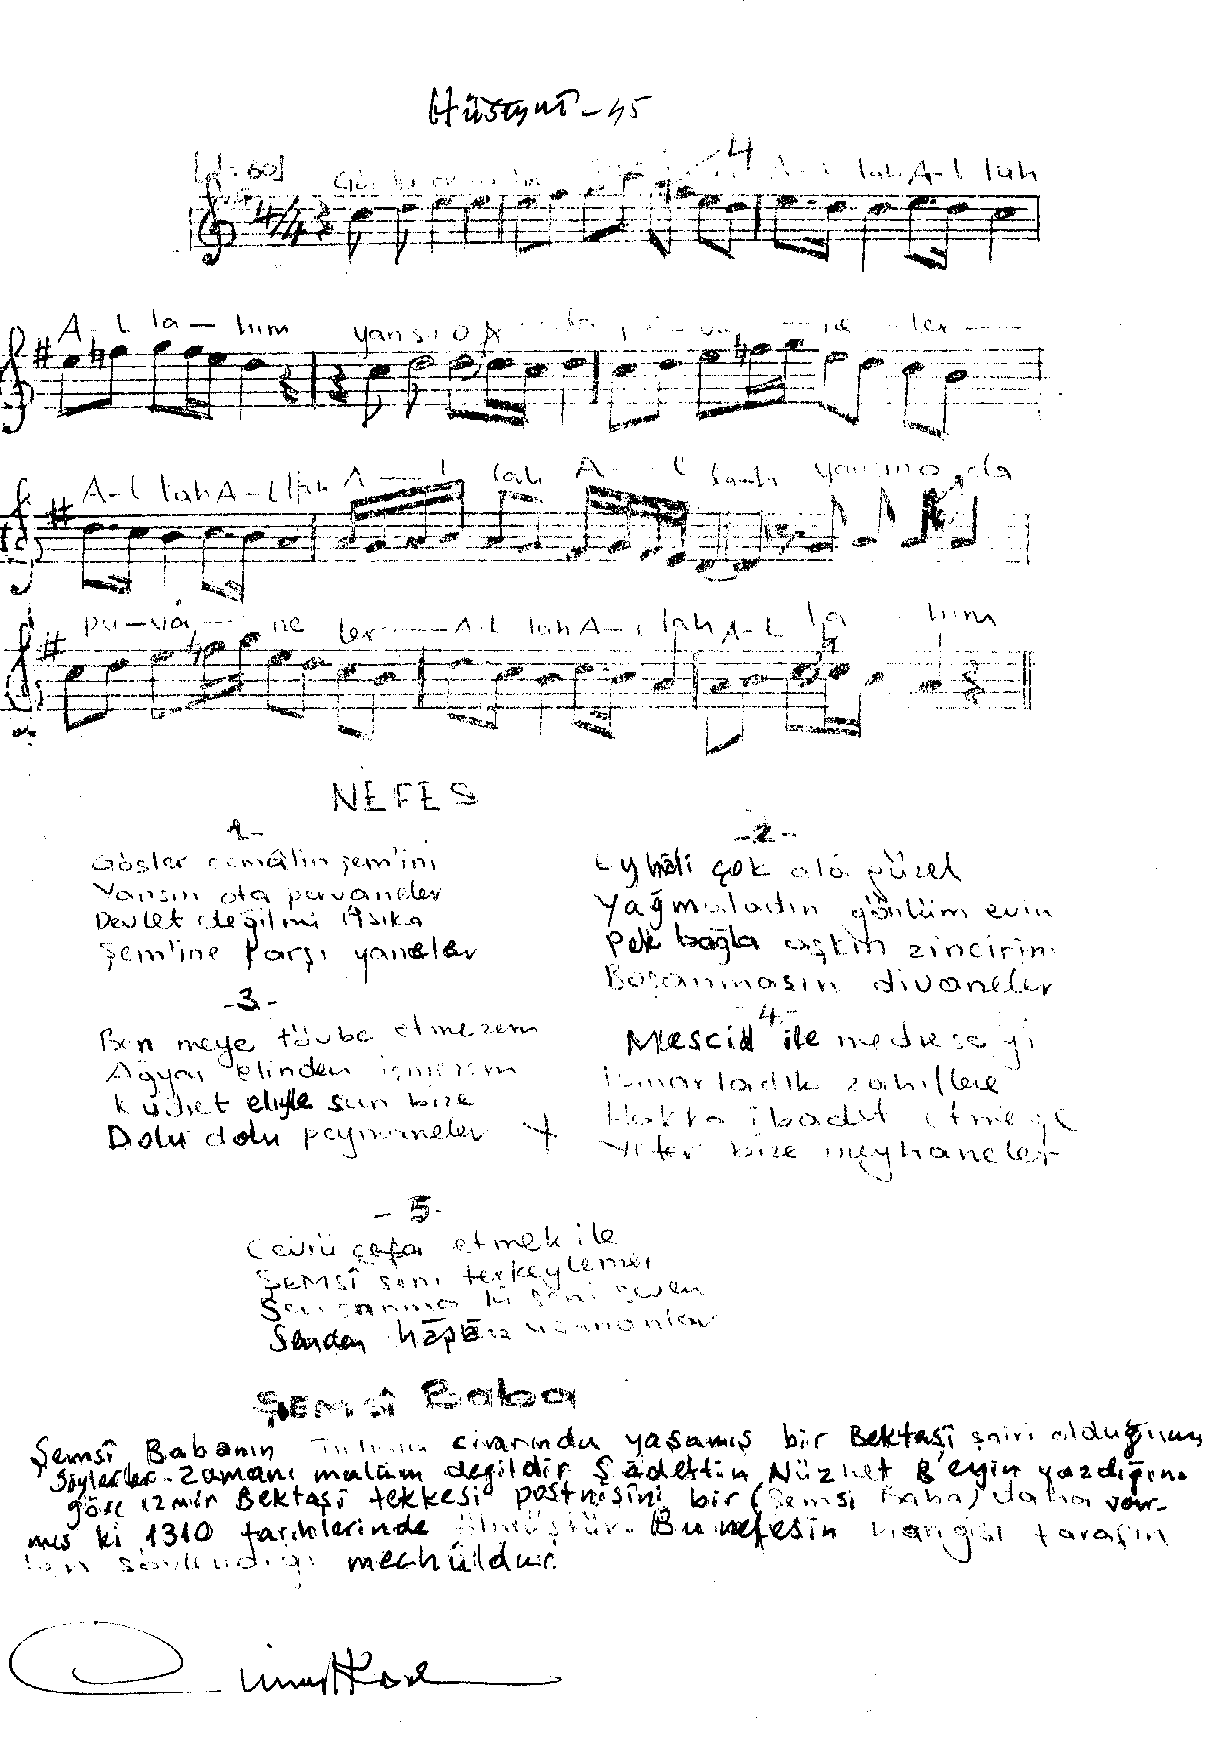 Hüseynî - 45
4
4/4
A-l lah A-l lah
A-l la-hım yansı o
A-l lah A-l lah A-l lah A-l lah yansın o da
pu-vâ-ne ler A-l lah A-l lah A-l la-hım
NEFES
-1-
Göster cemâlin şem'ini
Yansın oda pervaneler
Devlet değilmi Âşıka
Şem'ine karşı yaneler
-2-
Ey hâli çok alâ güzel
Yağmaladın gönlüm evin
Pek bağla aşkın zincirin
Boşanmasın divaneler
-3-
Ben meye tövbe etmezem
Ağyar elinden içmezem
Kudret eliyle sun bize
Dolu dolu peymaneler
-4-
Mescid ile medreseyi
Ismarladık zahitlere
Hakka ibadet etmeye
Yeter bize meyhaneler
-5-
Cevrü cefa etmek ile
Şemsî seni terkeylemez
Sen sanma ki seni seven
Senden
ŞEMSÎ Baba
Şemsî Babanın civarında yaşamış bir Bektaşî şairi olduğunu
Söylerler. Zamanı malûm değildir Sâdettin Nüzhet Beyin yazdığına
göre izmir Bektaşî tekkesi postnişîni bir (Şemsi Baba) daha var-
mış ki 1310 tarihlerinde ölmüştür. Bu nefesin hangisi tarafın
dan söylendiği meçhûldur.